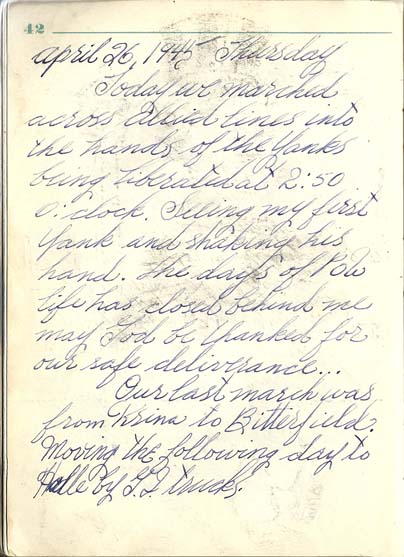 42
april 26, 1945 Thursday
Today we marched
across Allied lines into
the hands of the Yanks
being liberated at 2:50
o'clock. Seeing my first
Yank and shaking his
hand. The days of P.W
life has closed behind me
may God be thanked for
our safe deliverance...
Our last march was
from to Bitterfield.
Moving the following day to
Halle by G.I trucks.